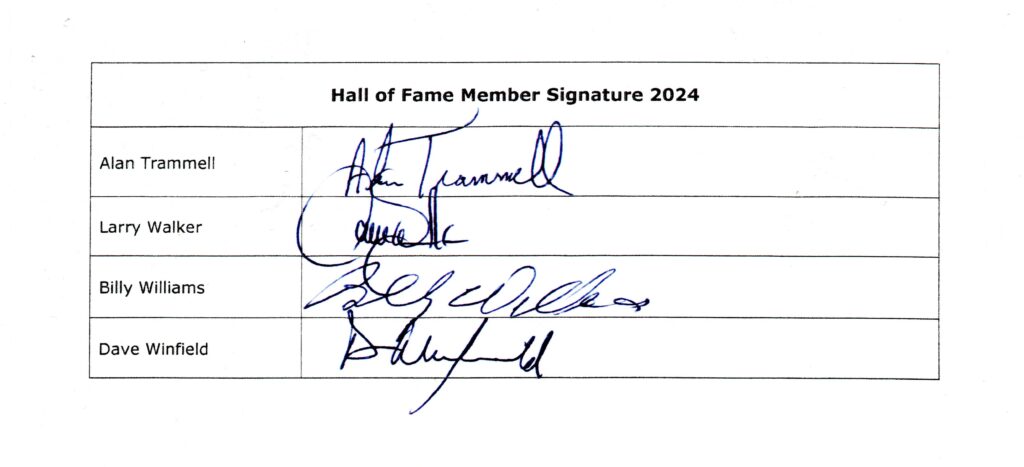 Hall of Fame Member Signature 2024
Alan Trammell Alan Trammell
Larry Walker
Billy Williams Billy Williams
Dave Winfield D Winfield